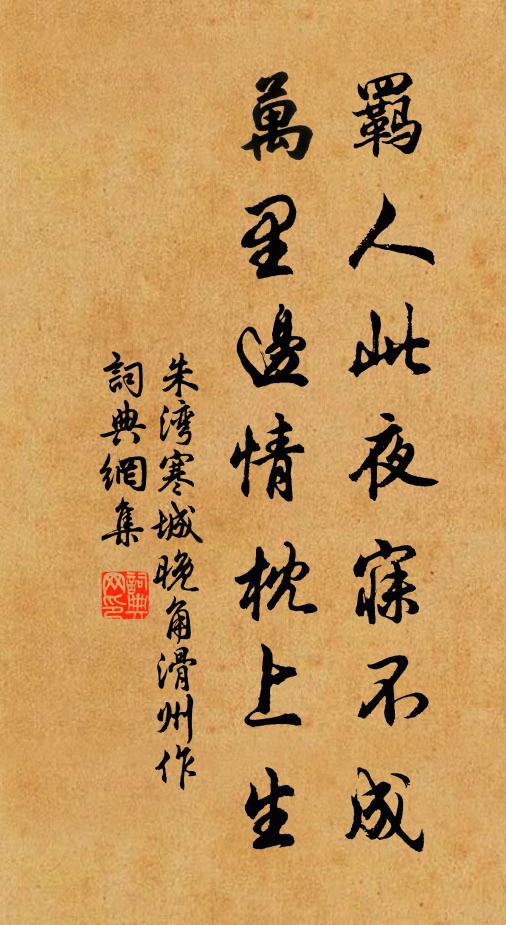 羈人此夜寐不成
萬里邊情枕上生
朱湾寒城晚角滑州作
詞典網集
詞典网印